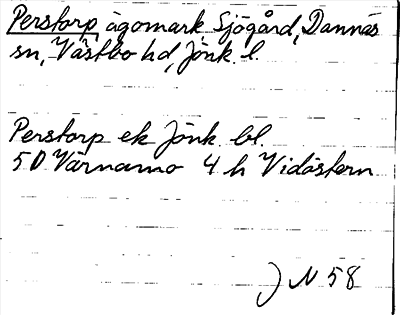 Perstorp, ägomark, Sjögård, Dannäs
sn, Västbo hd, Jönk. l.
Perstorp ek Jönk bl.
5D Värnamo 4 h Vidöstern
JN 58